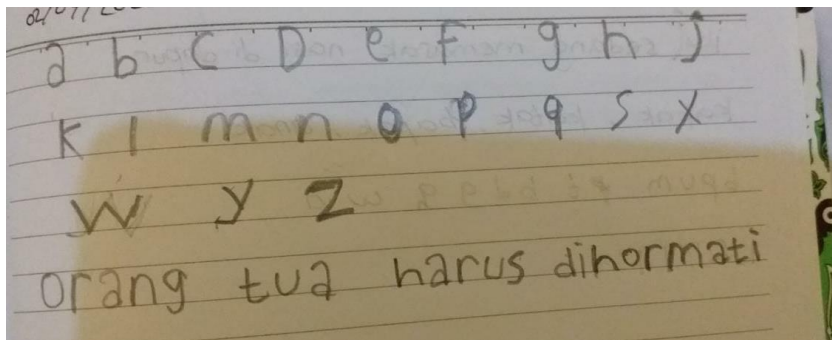 a b c D e f g h j
k l m n o p q s x
w y z
orang tua harus dihormati